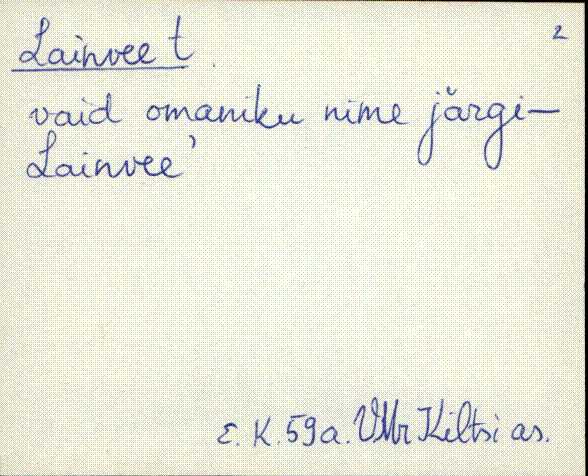 Lainvee t.
2
vaid omaniku nime järgi—
Lainvee'
E. K. 59a. VMr Kiltsi as.